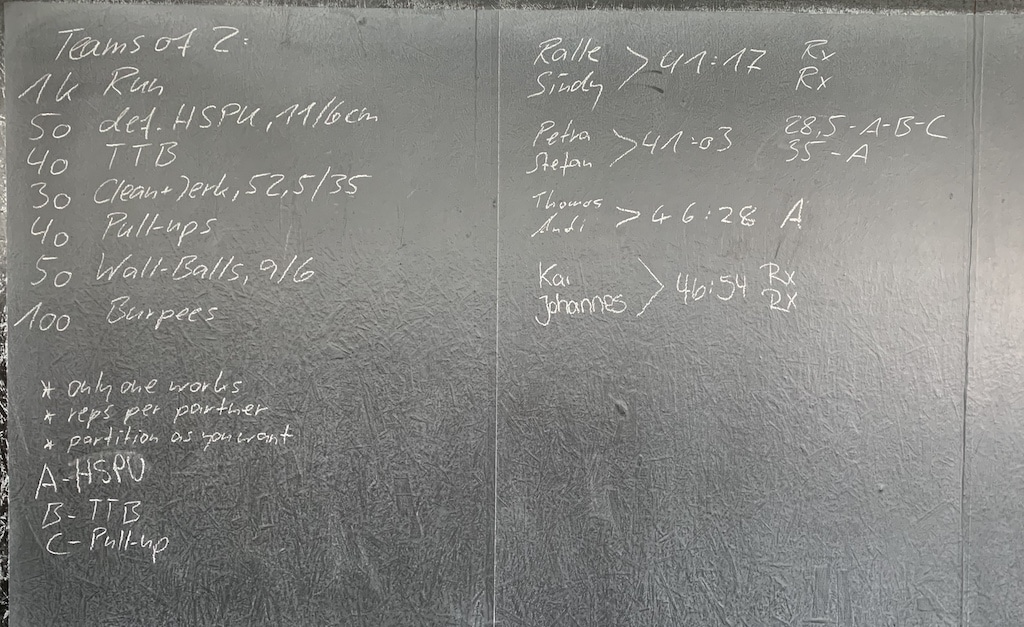 Teams of 2:
1k Run
50 def. HSPU, 11/6cm
40 TTB
30 Clean+Jerk, 52,5/35
40 Pull-ups
50 Wall-Balls, 9/6
100 Burpees
* only one works
* reps per partner
* partition as you want
A-HSPU
B- TTB
C- Pull-up
Ralle
Sindy > 41:17 Rx
Rx
Petra
Stefan > 41:03 28,5-A-B-C
35-A
Thomas
Andi > 46:28 A
Kai
Johannes > 46:54 Rx
Rx